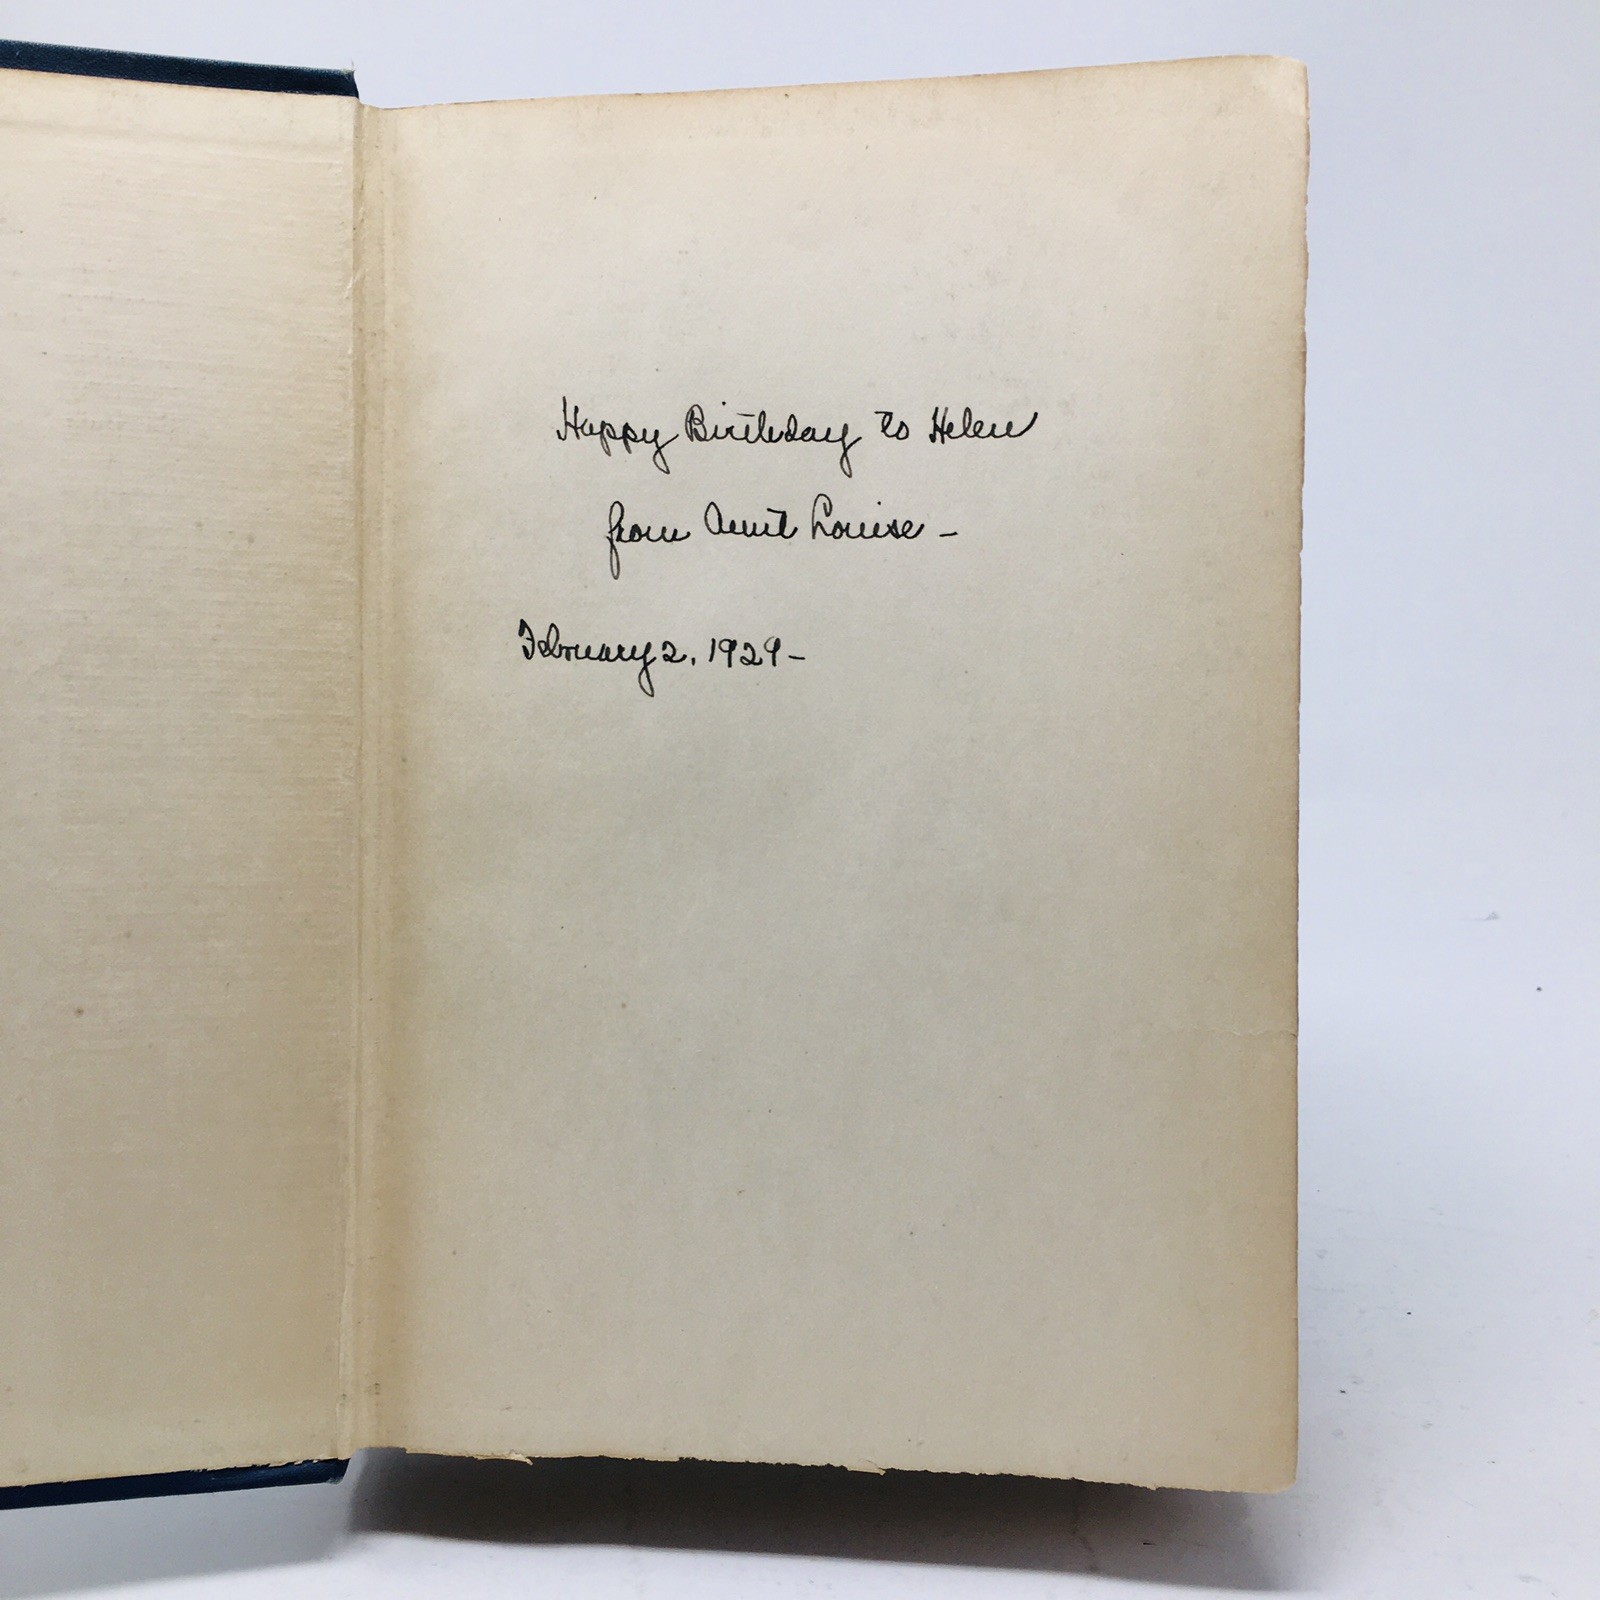 Happy Birthday to Helen
from Aunt Louise -
February 2, 1929 -